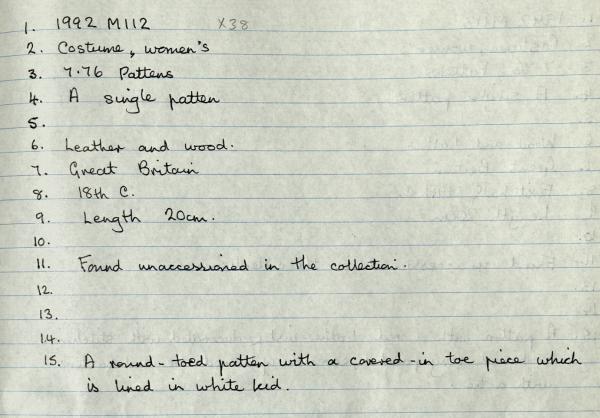 1. 1992 M112 X38
2. Costume, women's
3. 7.76 Pattens
4. A single patten
5.
6. Leather and wood.
7. Great Britain
8. 18th C.
9. Length 20cm.
10.
11. Found unaccessioned in the collection.
12.
13.
14.
15. A round-toed patten with a covered-in toe piece which
is lined in white kid.